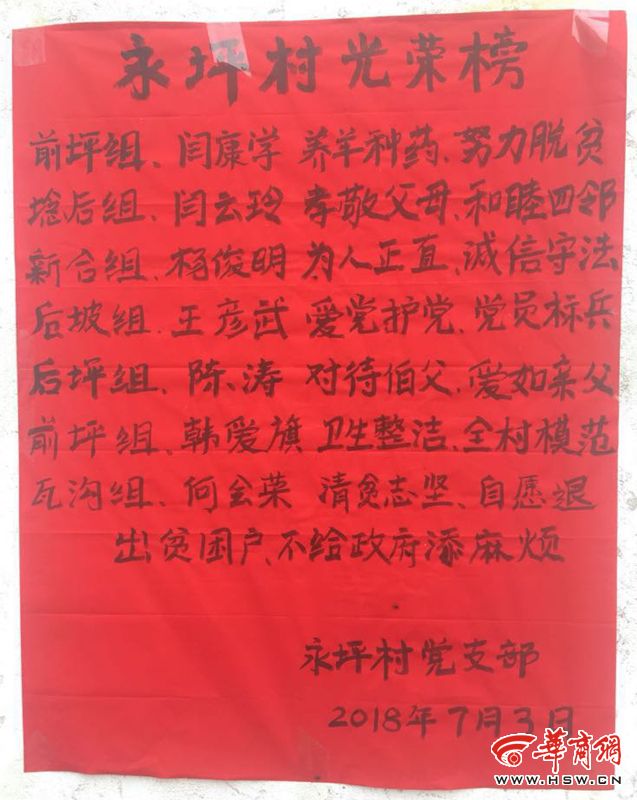 永坪村光荣榜
前坪组、闫康学 养羊种药、努力脱贫
埝后组、闫云玲 孝敬父母、和睦四邻
新合组、杨俊明 为人正直、诚信守法
后坡组、王彦武 爱党护党、党员标兵
后坪组、陈、涛 对待伯父、爱如亲父
前坪组、韩爱旗 卫生整洁、全村模范
瓦沟组、何会荣 清贫志坚、自愿退
出贫困户、不给政府添麻烦
永坪村党支部
2018年7月3日
华商网
WWW.HSW.CN